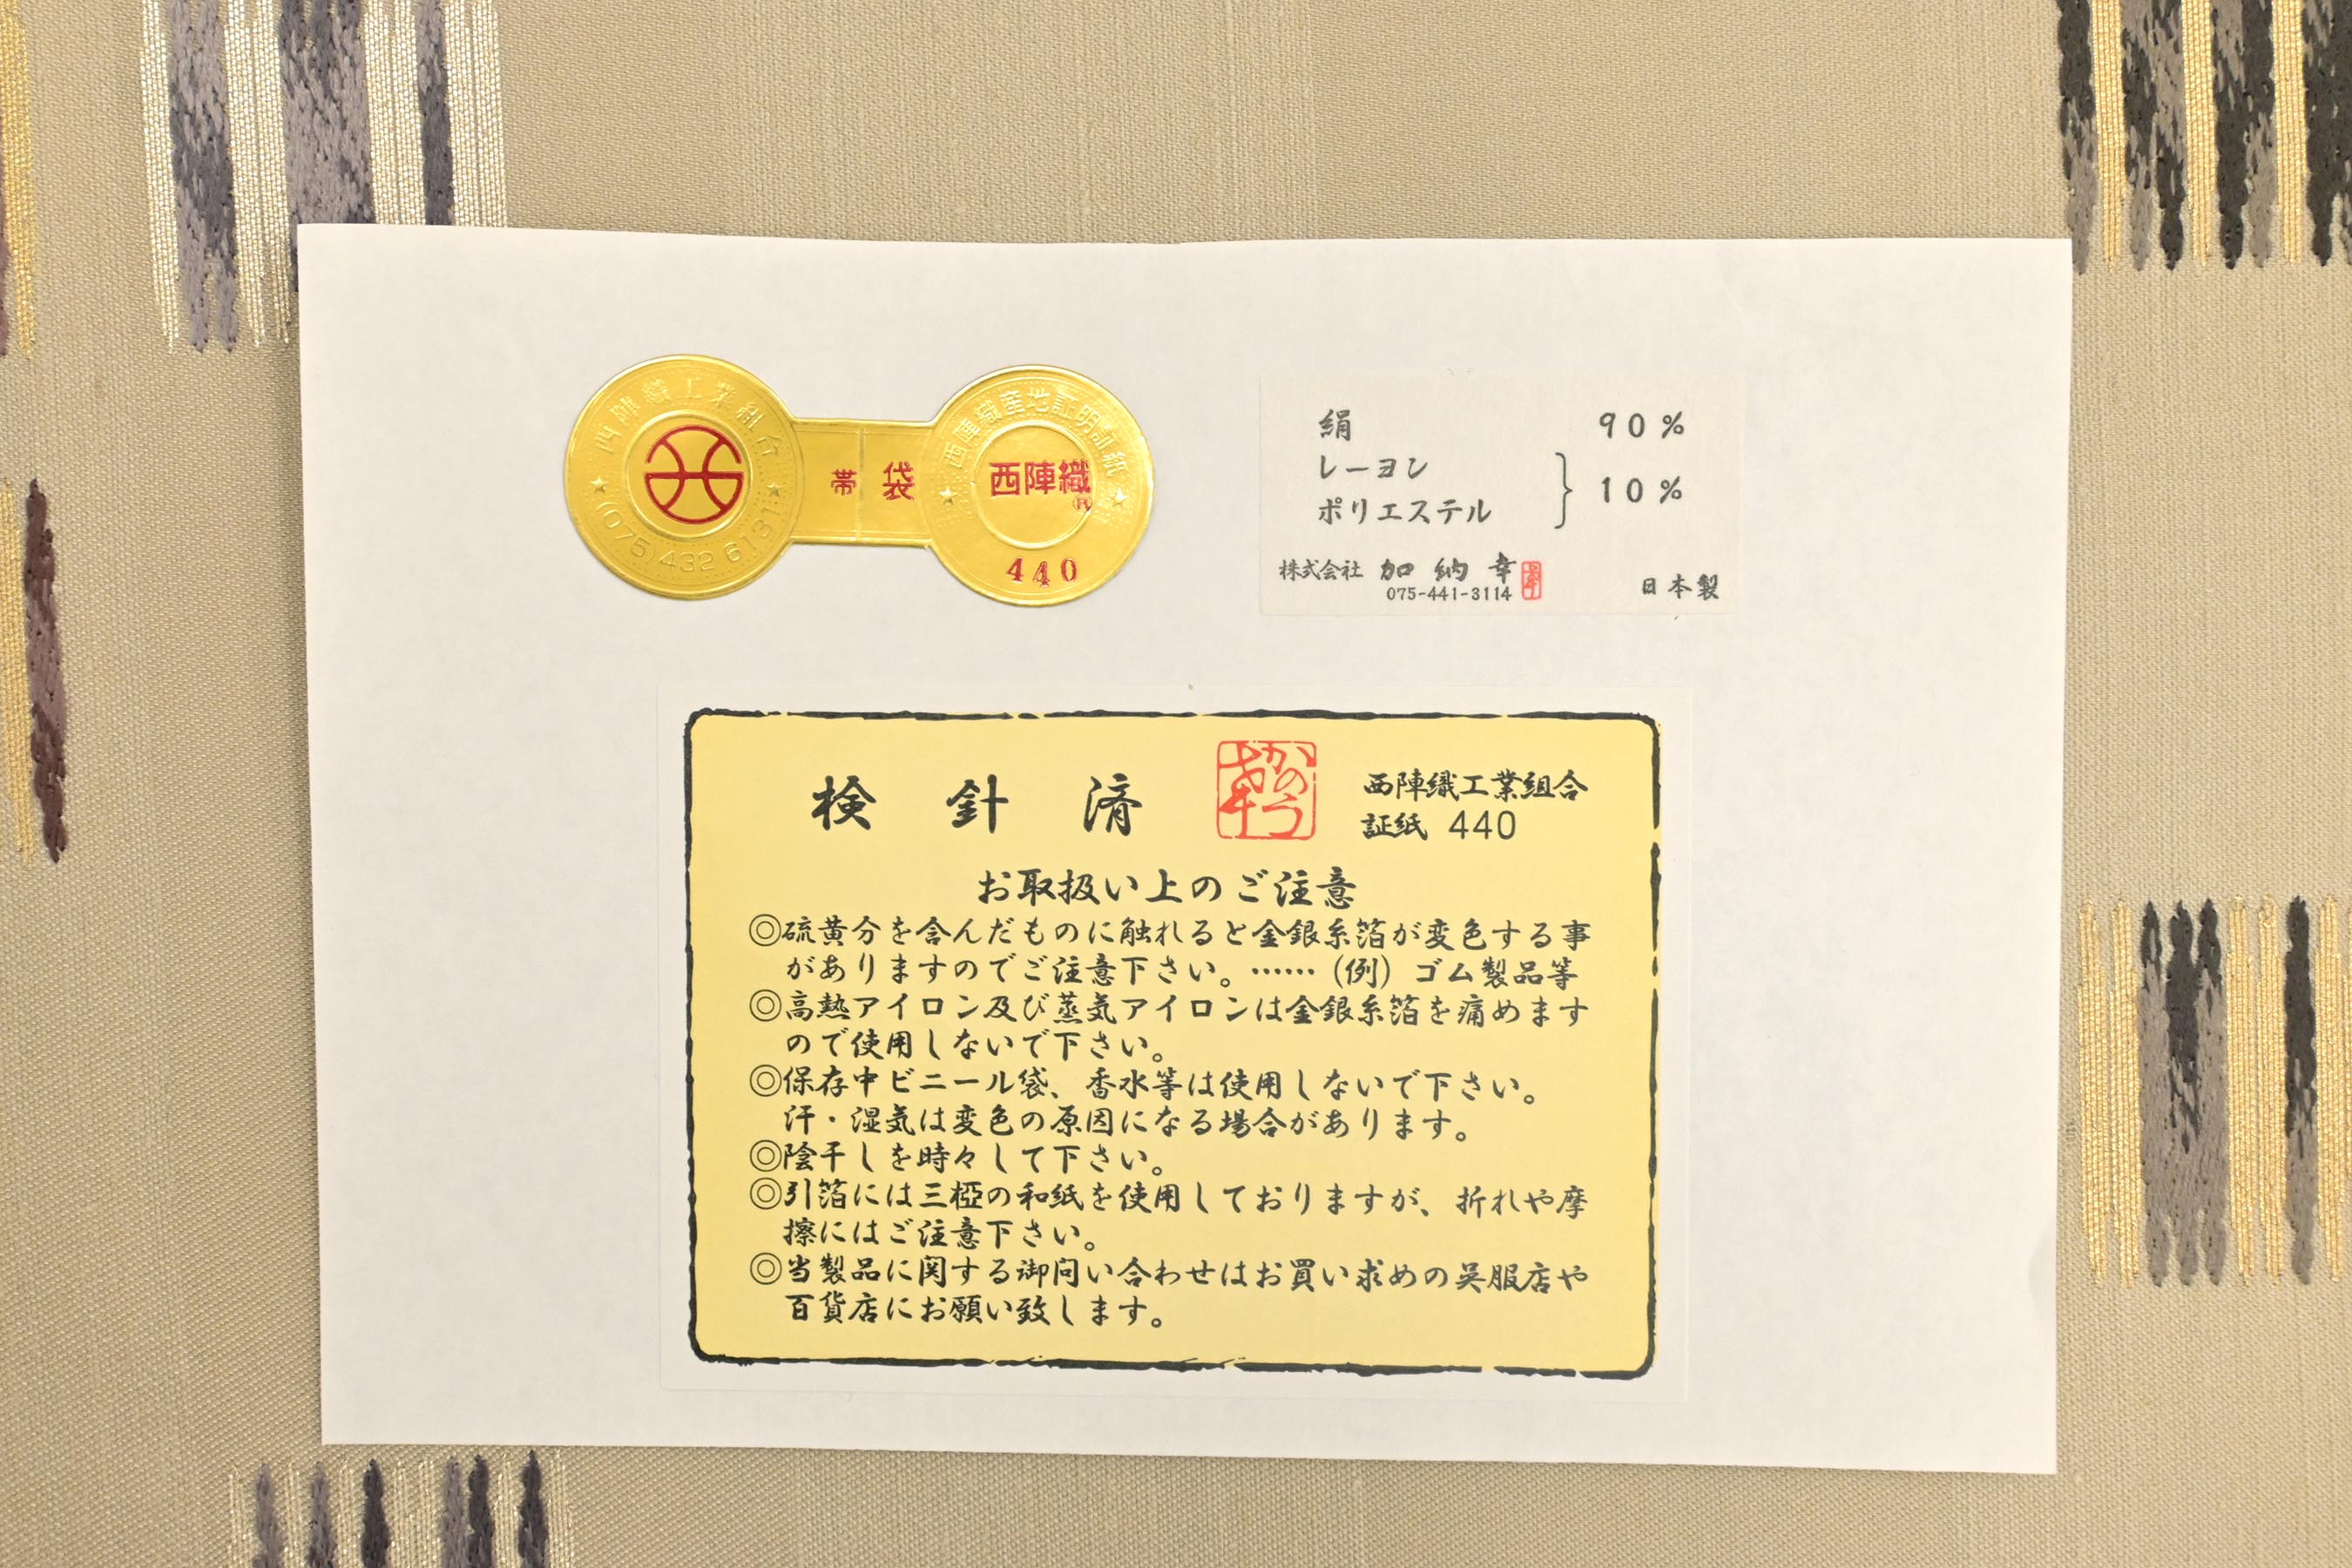 西陣織工業組合
(075)432 6131
帯 袋
西陣織産地証明証紙
西陣織
®
440
絹 90%
レーヨン
ポリエステル } 10%
株式会社 加納幸
075-441-3114
日本製
検針済
かのう幸
西陣織工業組合
証紙 440
お取扱い上のご注意
◎硫黄分を含んだものに触れると金銀糸箔が変色する事
がありますのでご注意下さい。……（例）ゴム製品等
◎高熱アイロン及び蒸気アイロンは金銀糸箔を痛めます
ので使用しないで下さい。
◎保存中ビニール袋、香水等は使用しないで下さい。
汗・湿気は変色の原因になる場合があります。
◎陰干しを時々して下さい。
◎引箔には三椏の和紙を使用しておりますが、折れや摩
擦にはご注意下さい。
◎当製品に関する御問い合わせはお買い求めの呉服店や
百貨店にお願い致します。